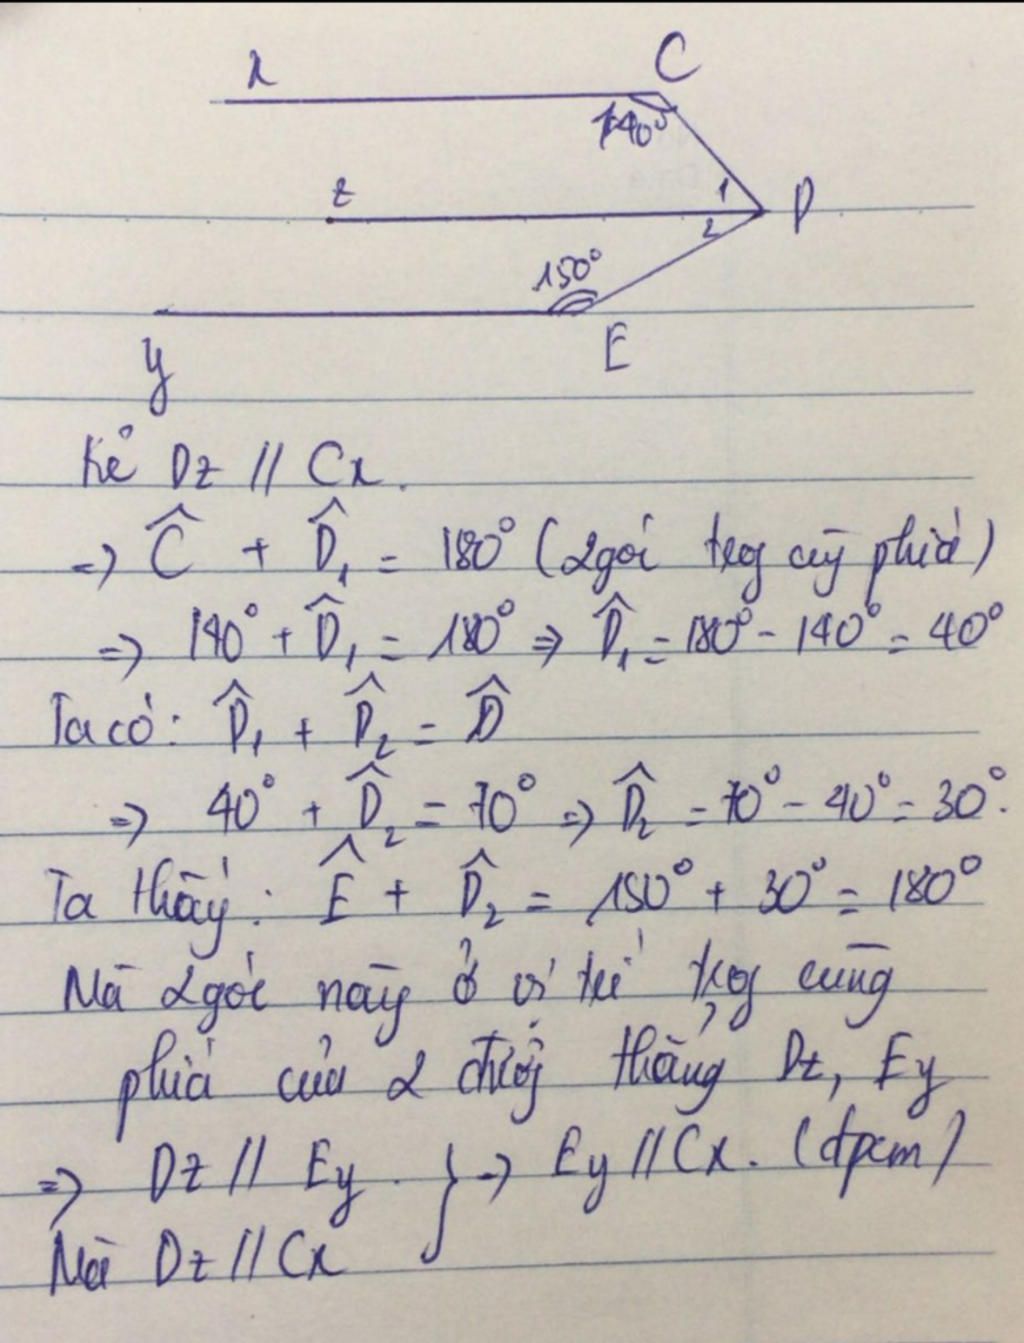 x C
140°
z 1 D
2
150°
y E
Kẻ Dz // Cx.
=> Ĉ + D̂₁ = 180° (2 góc trog cùg phía)
=> 140° + D̂₁ = 180° => D̂₁ = 180° - 140° = 40°
Ta có: D̂₁ + D̂₂ = D̂
=> 40° + D̂₂ = 70° => D̂₂ = 70° - 40° = 30°.
Ta thấy: Ê + D̂₂ = 150° + 30° = 180°
Mà 2 góc này ở vị trí trog cùng
phía của 2 đườg thẳng Dz, Ey
=> Dz // Ey. } => Ey // Cx. (đpcm)
Mà Dz // Cx